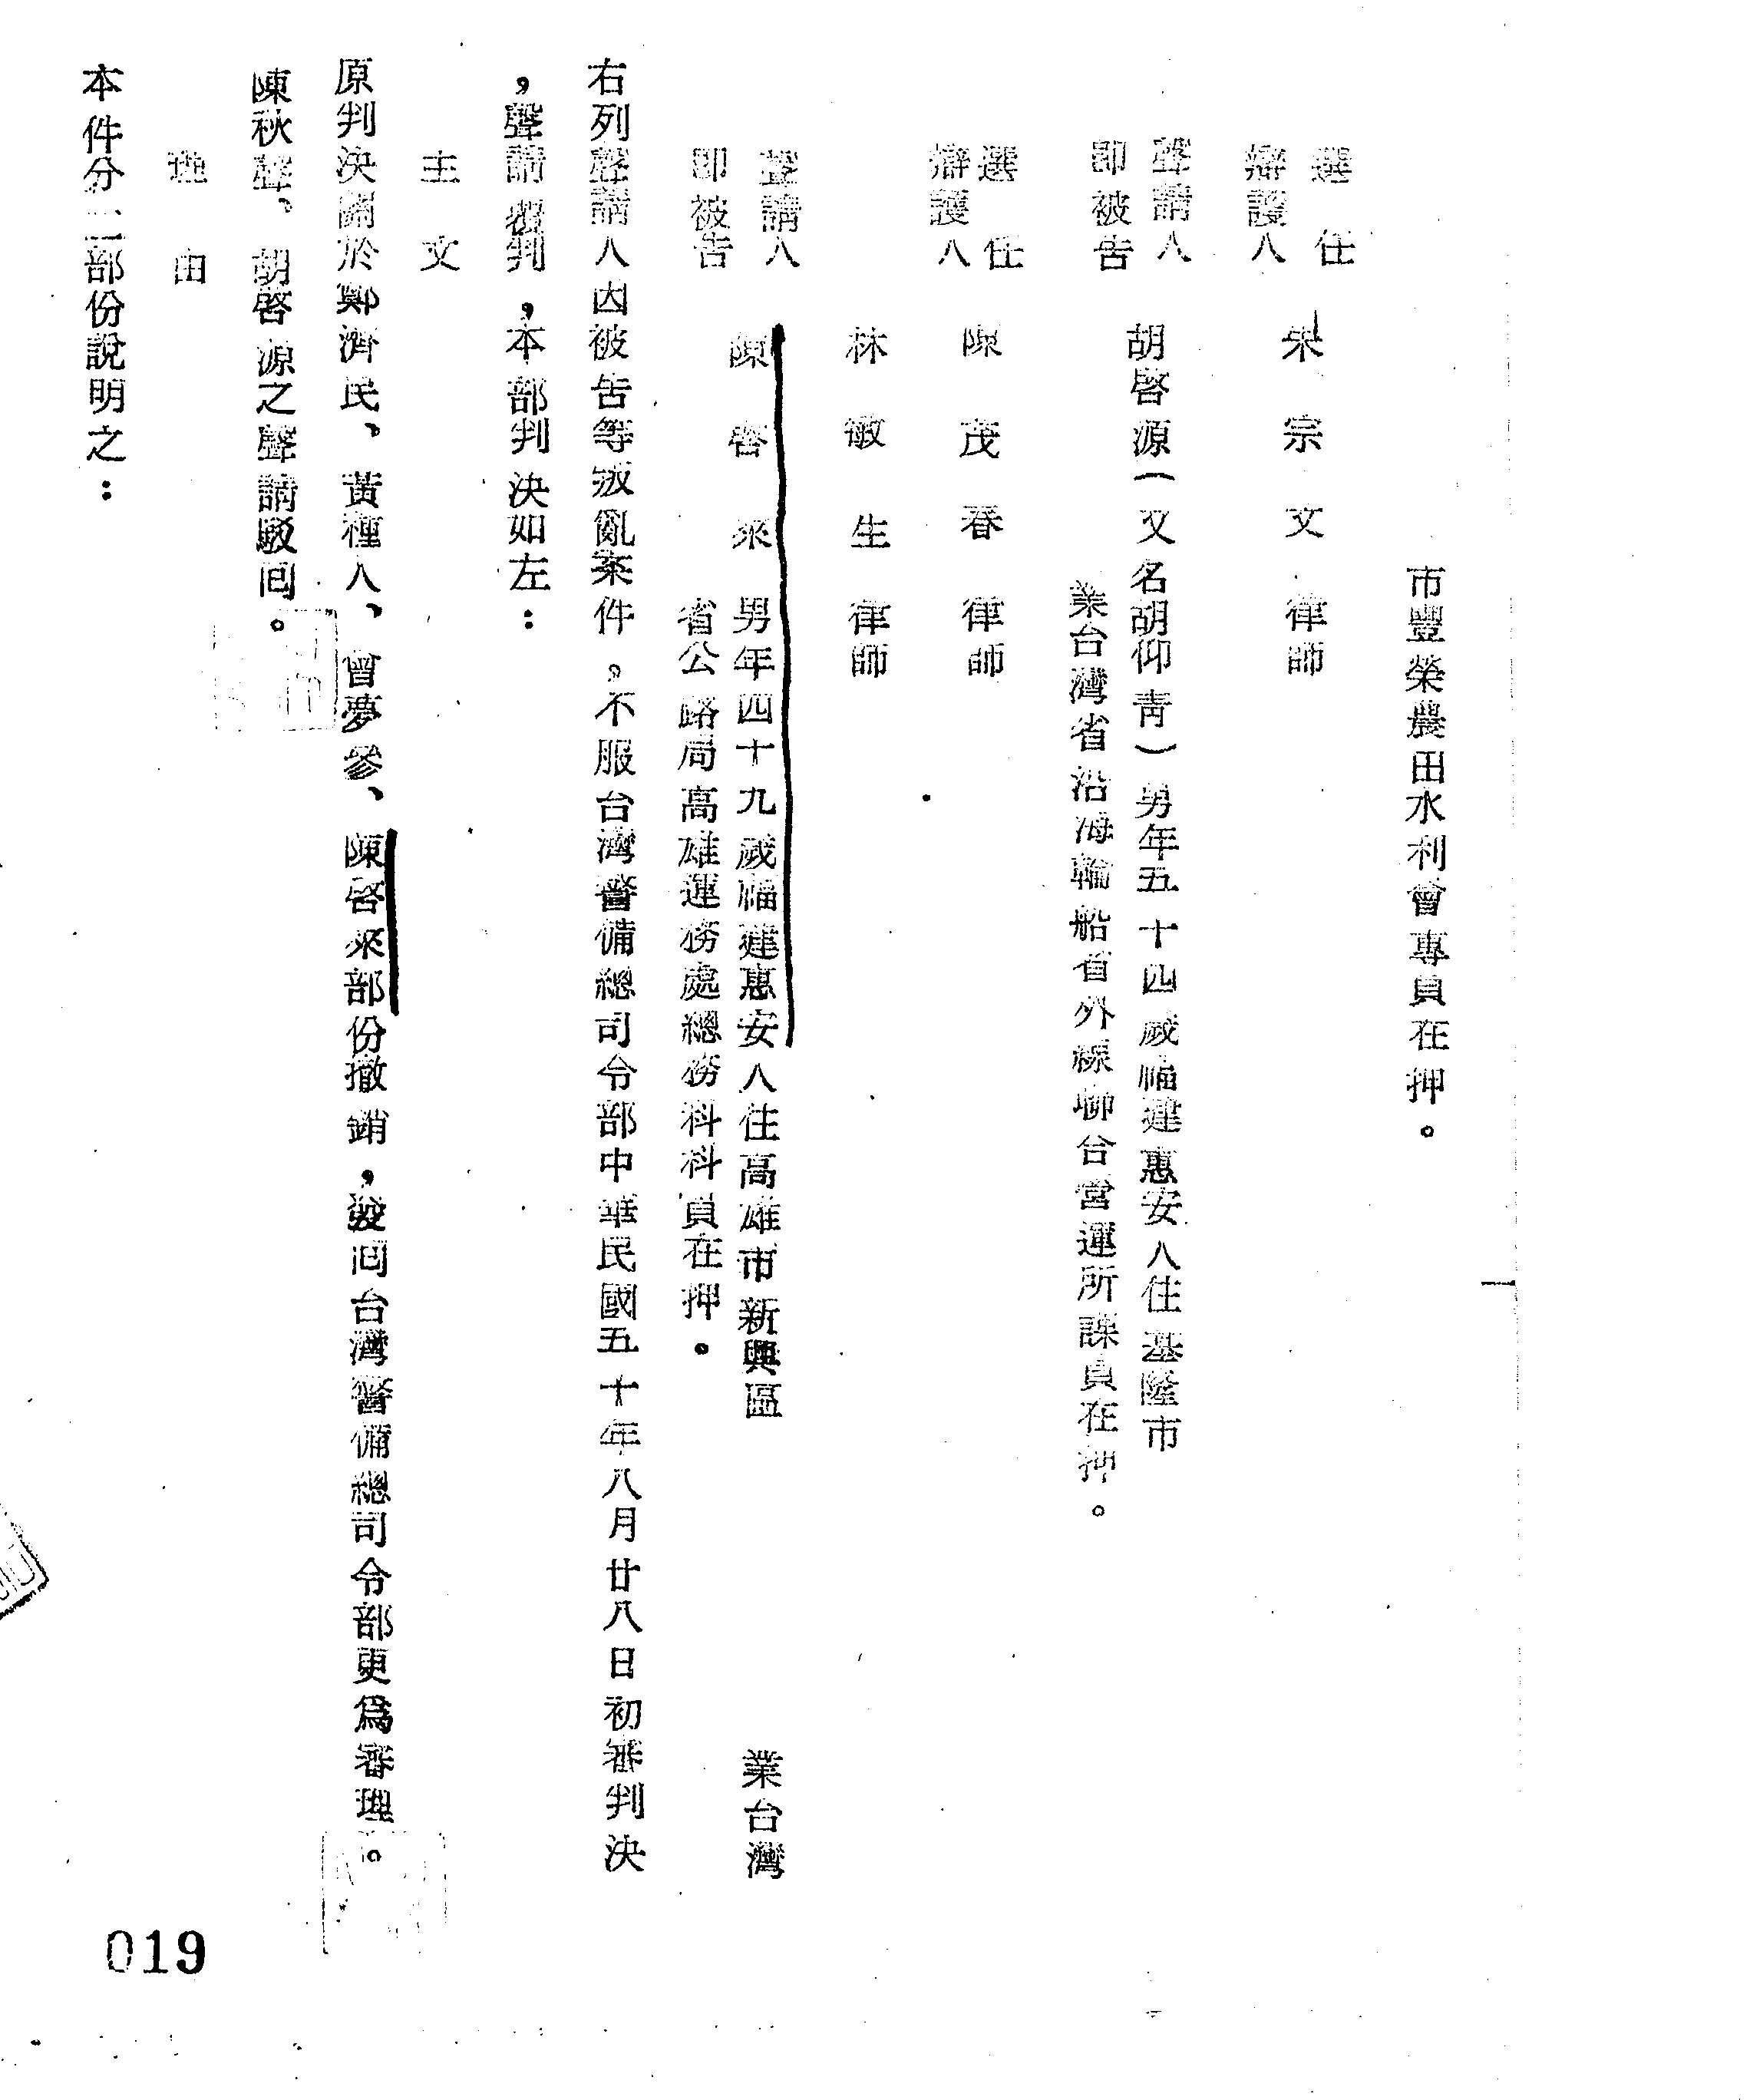 市豐榮農田水利會專員在押。
選任
辯護人
朱宗文律師
聲請人
即被告
胡啓源(又名胡仰靑)男年五十四歲福建惠安人住基隆市
業台灣省沿海輪船省外線聯合營運所課員在押。
選任
辯護人
陳茂春律師
林敏生律師
聲請人
即被告
陳啓來 男年四十九歲福建惠安人住高雄市新興區 業台灣
省公路局高雄運務處總務科科員在押。
右列聲請人因被告等叛亂案件,不服台灣警備總司令部中華民國五十年八月廿八日初審判決
,聲請覆判,本部判決如左:
主文
原判決關於鄭濟民、黃種人、曾夢參、陳啓來部份撤銷,發囘台灣警備總司令部更爲審理。
陳秋聲、胡啓源之聲請駁囘。
理由
本件分二部份說明之:
019